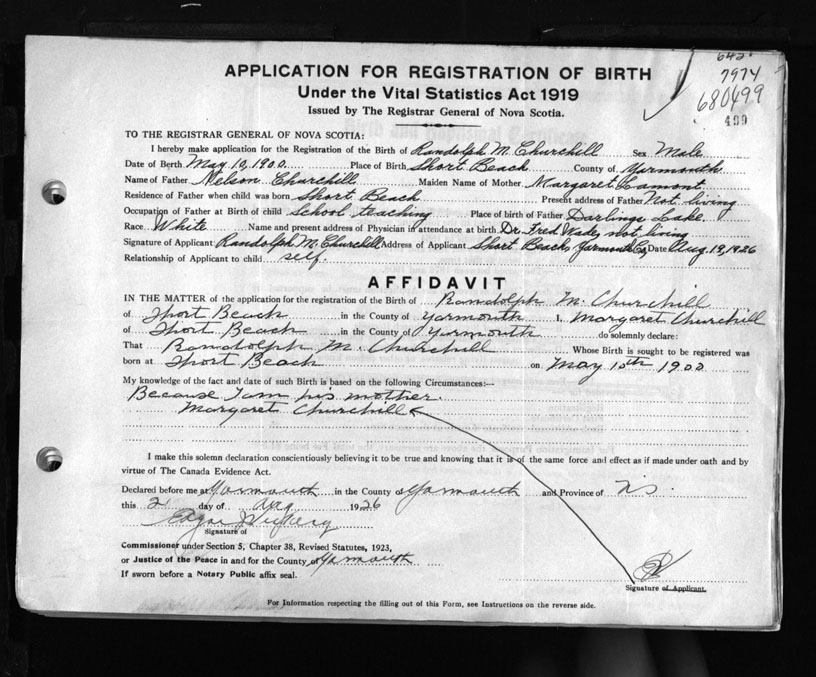 642
7974
680499
499
APPLICATION FOR REGISTRATION OF BIRTH
Under the Vital Statistics Act 1919
Issued by The Registrar General of Nova Scotia.
TO THE REGISTRAR GENERAL OF NOVA SCOTIA:
I hereby make application for the Registration of the Birth of Randolph M. Churchill Sex Male
Date of Berth May, 10, 1900. Place of Birth Short Beach County of Yarmouth
Name of Father Nelson Churchill Maiden Name of Mother Margaret Lamont
Residence of Father when child was born Short Beach Present address of Father Not living
Occupation of Father at Birth of child School teaching Place of birth of Father Darlings Lake.
Race White Name and present address of Physician in attendance at birth Dr Fred Wade, not living
Signature of Applicant Randolph M. Churchill Address of Applicant Short Beach Yarmouth Co Date Aug. 19, 1926
Relationship of Applicant to child self.
AFFIDAVIT
IN THE MATTER of the application for the registration of the Birth of Randolph M. Churchill
of Short Beach in the County of Yarmouth I, Margaret Churchill
of Short Beach in the County of Yarmouth do solemnly declare:
That Randolph M. Churchill Whose Birth is sought to be registered was
born at Short Beach on May 10th 1900
My knowledge of the fact and date of such Birth is based on the following Circumstances:--
Because I am his mother.
Margaret Churchill
I make this solemn declaration conscientiously believing it to be true and knowing that it is of the same force and effect as if made under oath and by
virtue of The Canada Evidence Act.
Declared before me at Yarmouth in the County of Yarmouth and Province of N.S.
this 21 day of Aug 1926
Edgar
Signature of
Commissioner under Section 5, Chapter 38, Revised Statutes, 1923,
or Justice of the Peace in and for the County of Yarmouth
If sworn before a Notary Public affix seal.
Signature of Applicant.
For Information respecting the filling out of this Form, see Instructions on the reverse side.